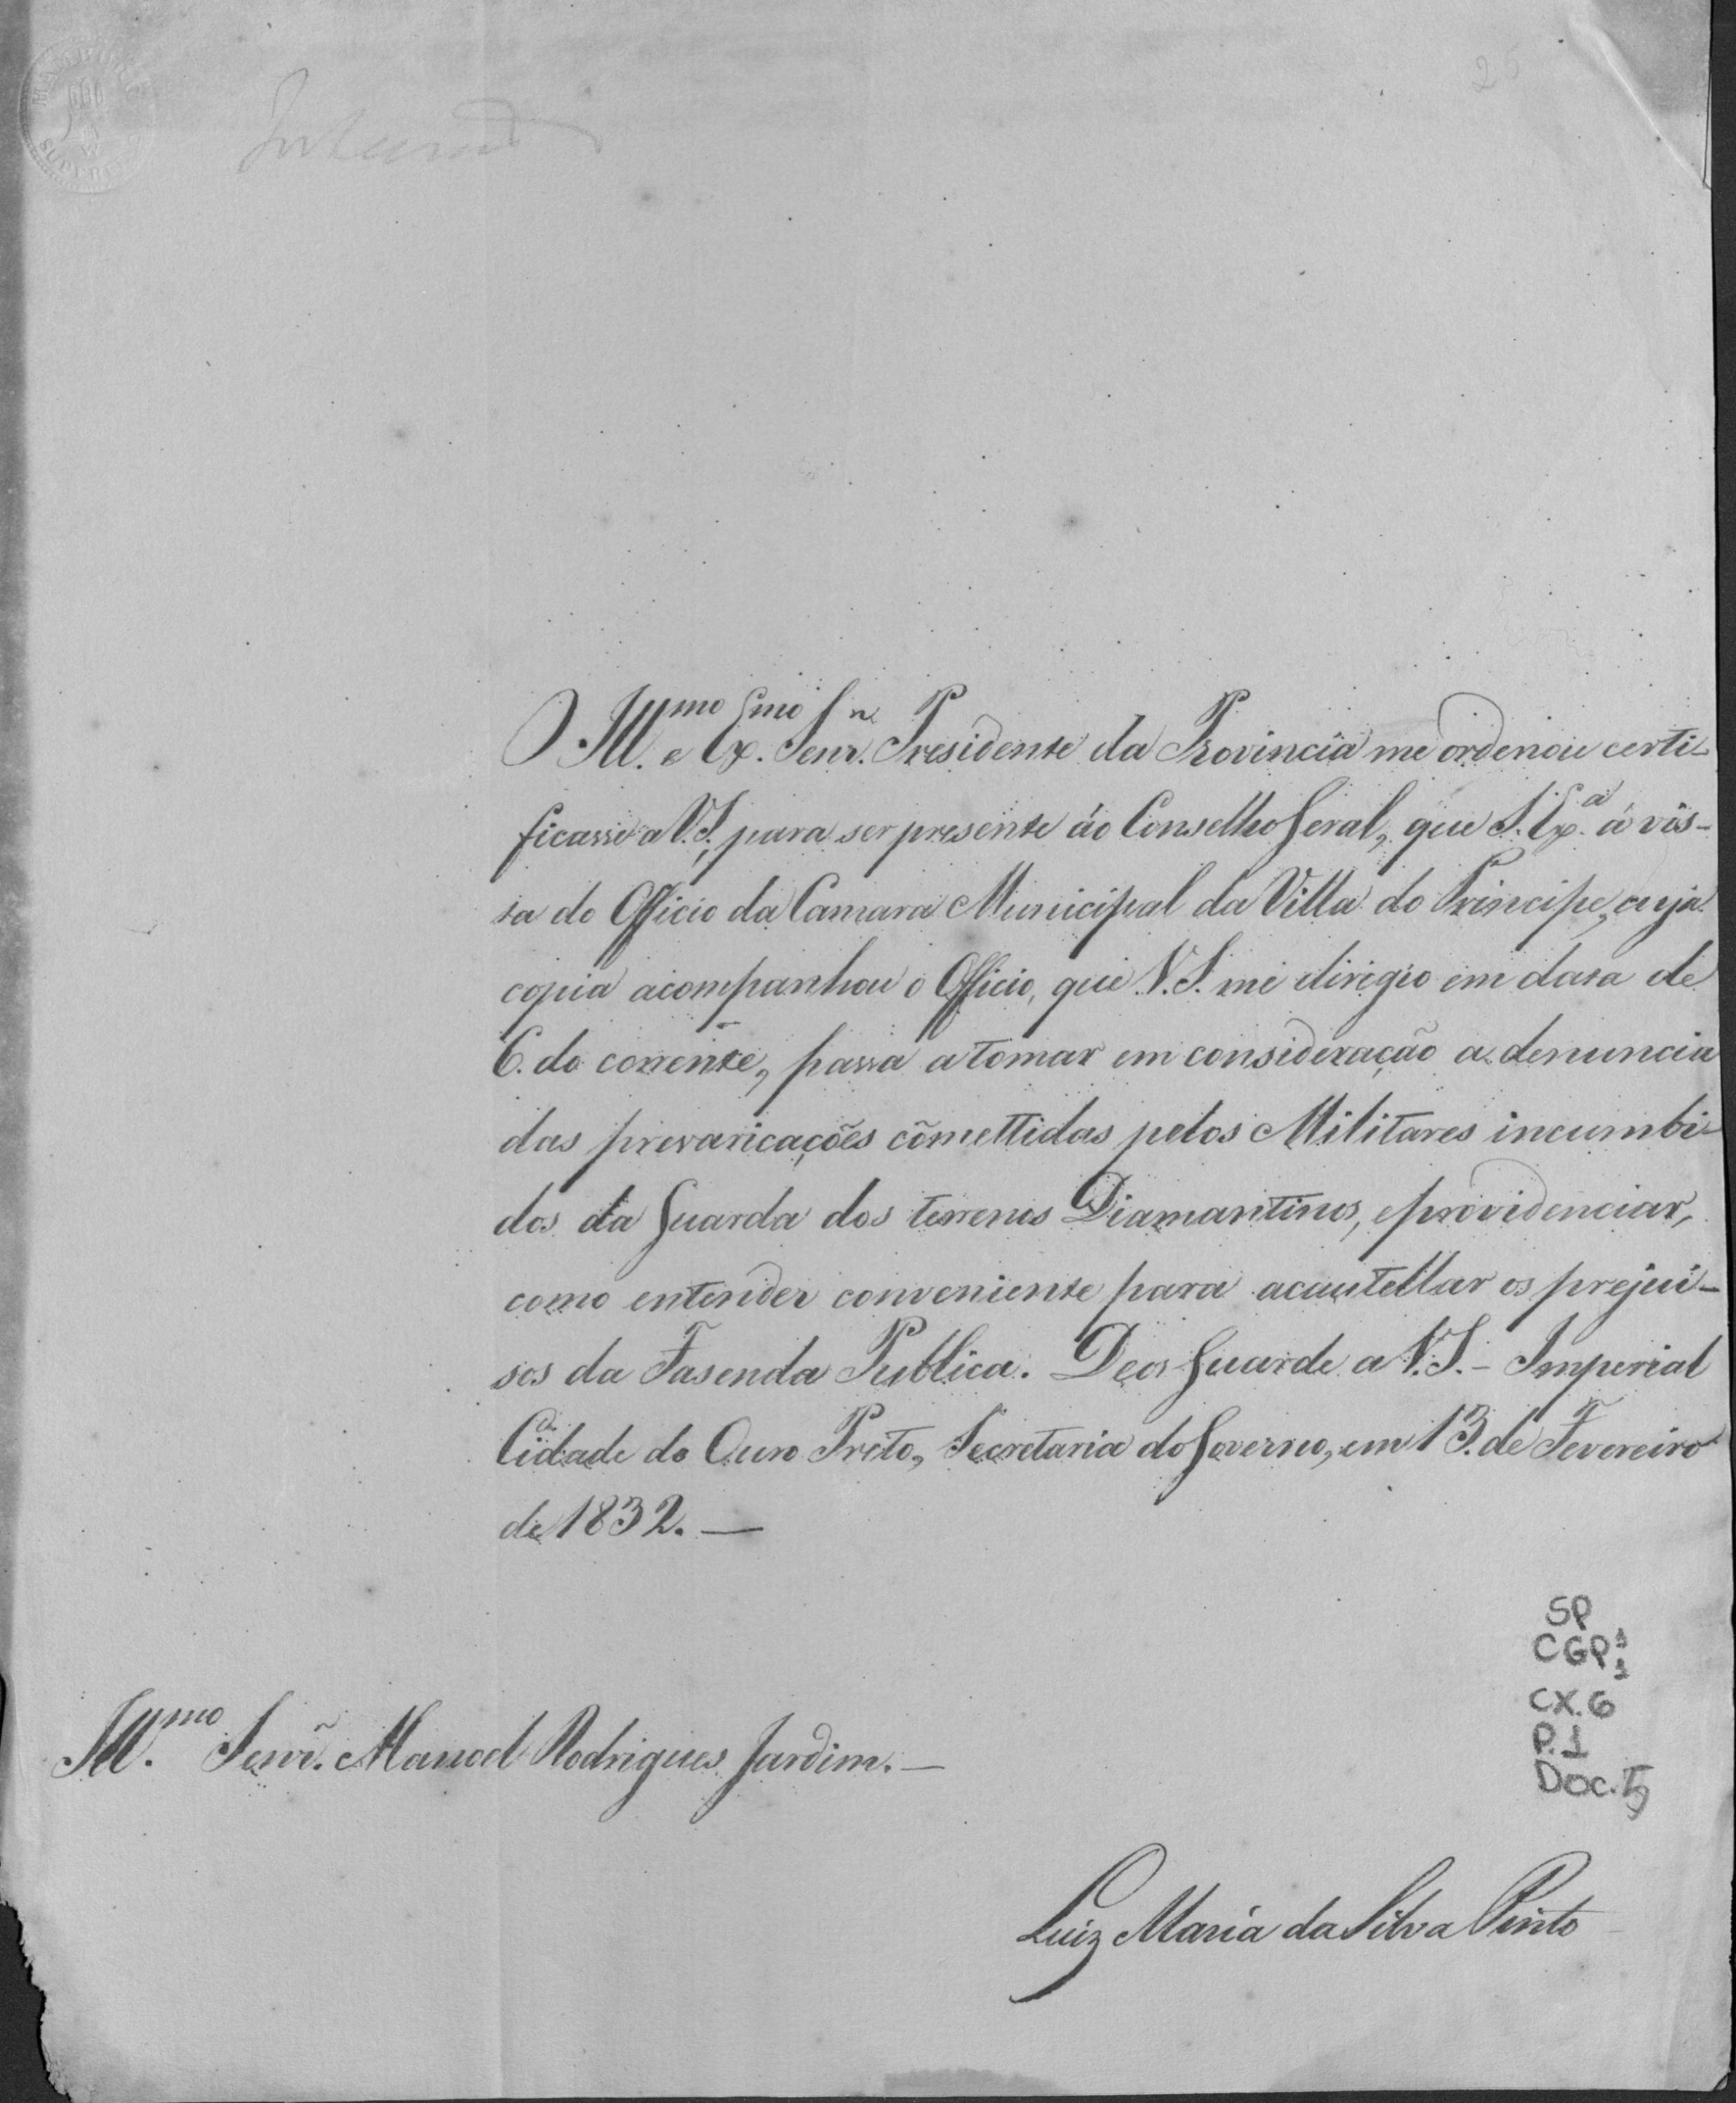 25
Inteirado
O Ill.mo e Ex.mo Senr. Presidente da Provincia me ordenou certi-
ficasse a V.S., para ser presente áo Conselho Geral, que S. Ex.a á vis-
ta do Officio da Camara Municipal da Villa do Principe, cuja
copia acompanhou o Officio, que V.S. me dirigio em data de
6. do corrente, passa a tomar em consideração a denuncia
das prevaricações cõmettidas pelos Militares incumbi-
dos da Guarda dos terrenos Diamantinos, e providenciar,
como entender conveniente para acautellar os prejui-
sos da Fasenda Publica. Deos Guarde a V.S. - Imperial
Cidade do Ouro Preto, Secretaria do Governo, em 13. de Fevereiro
de 1832. —
SP
CGP1
1
CX.6
P.1
Doc.
Ill.mo Senr. Manoel Rodrigues Jardim. —
Luiz Maria da Silva Pinto